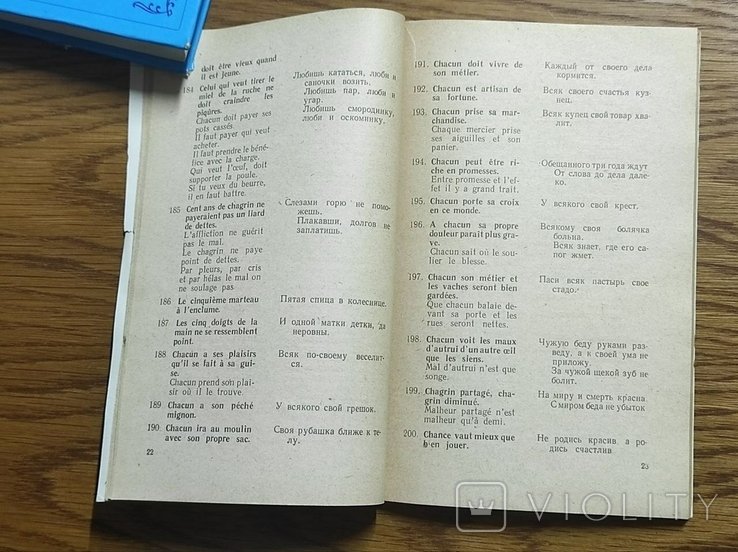 doit être vieux quand
il est jeune.
184 Celui qui veut tirer le
miel de la ruche ne
doit craindre les
piqûres.
Chacun doit payer ses
pots cassés.
Il faut payer qui veut
acheter.
Il faut prendre le béné-
fice avec la charge.
Qui veut l'œuf, doit
supporter la poule.
Si tu veux du beurre,
il en faut battre.
Любишь кататься, люби и
саночки возить.
Любишь пар, люби и
угар.
Любишь смородинку,
люби и оскоминку.
185 Cent ans de chagrin ne
payeraient pas un liard
de dettes.
L'affliction ne guérit
pas le mal.
Le chagrin ne paye
point de dettes.
Par pleurs, par cris
et par hélas le mal on
ne soulage pas
Слезами горю не помо-
жешь.
Плакавши, долгов не
заплатишь.
186 Le cinquième marteau
à l'enclume.
Пятая спица в колеснице.
187 Les cinq doigts de la
main ne se ressemblent
point.
И одной матки детки, да
неровны.
188 Chacun a ses plaisirs
qu'il se fait à sa gui-
se.
Chacun prend son plai-
sir où il le trouve.
Всяк по-своему веселит-
ся.
189 Chacun a son péché
mignon.
У всякого свой грешок.
190. Chacun ira au moulin
avec son propre sac.
Своя рубашка ближе к те-
лу.
22
191. Chacun doit vivre de
son métier.
Каждый от своего дела
кормится.
192. Chacun est artisan de
sa fortune.
Всяк своего счастья куз-
нец.
193. Chacun prise sa mar-
chandise.
Chaque mercier prise
ses aiguilles et son
panier.
Всяк купец свой товар хва-
лит.
194. Chacun peut être ri-
che en promesses.
Entre promesse et l'ef-
fet il y a grand trait.
Обещанного три года ждут
От слова до дела дале-
ко.
195. Chacun porte sa croix
en ce monde.
У всякого свой крест.
196. A chacun sa propre
douleur paraît plus gra-
ve.
Chacun sait où le sou-
lier le blesse.
Всякому своя болячка
больна.
Всяк знает, где его са-
пог жмет.
197. Chacun son métier et
les vaches seront bien
gardées.
Que chacun balaie de-
vant sa porte et les
rues seront nettes.
Паси всяк пастырь свое
стадо.
198. Chacun voit les maux
d'autrui d'un autre œil
que les siens.
Mal d'autrui n'est que
songe.
Чужую беду руками раз-
веду, а к своей ума не
приложу.
За чужой щекой зуб не
болит.
199. Chagrin partagé, cha-
grin diminué.
Malheur partagé n'est
malheur qu'à demi.
На миру и смерть красна
С миром беда не убыток
200. Chance vaut mieux que
bien jouer.
Не родись красив, а ро-
дись счастлив
23
VIOLITY